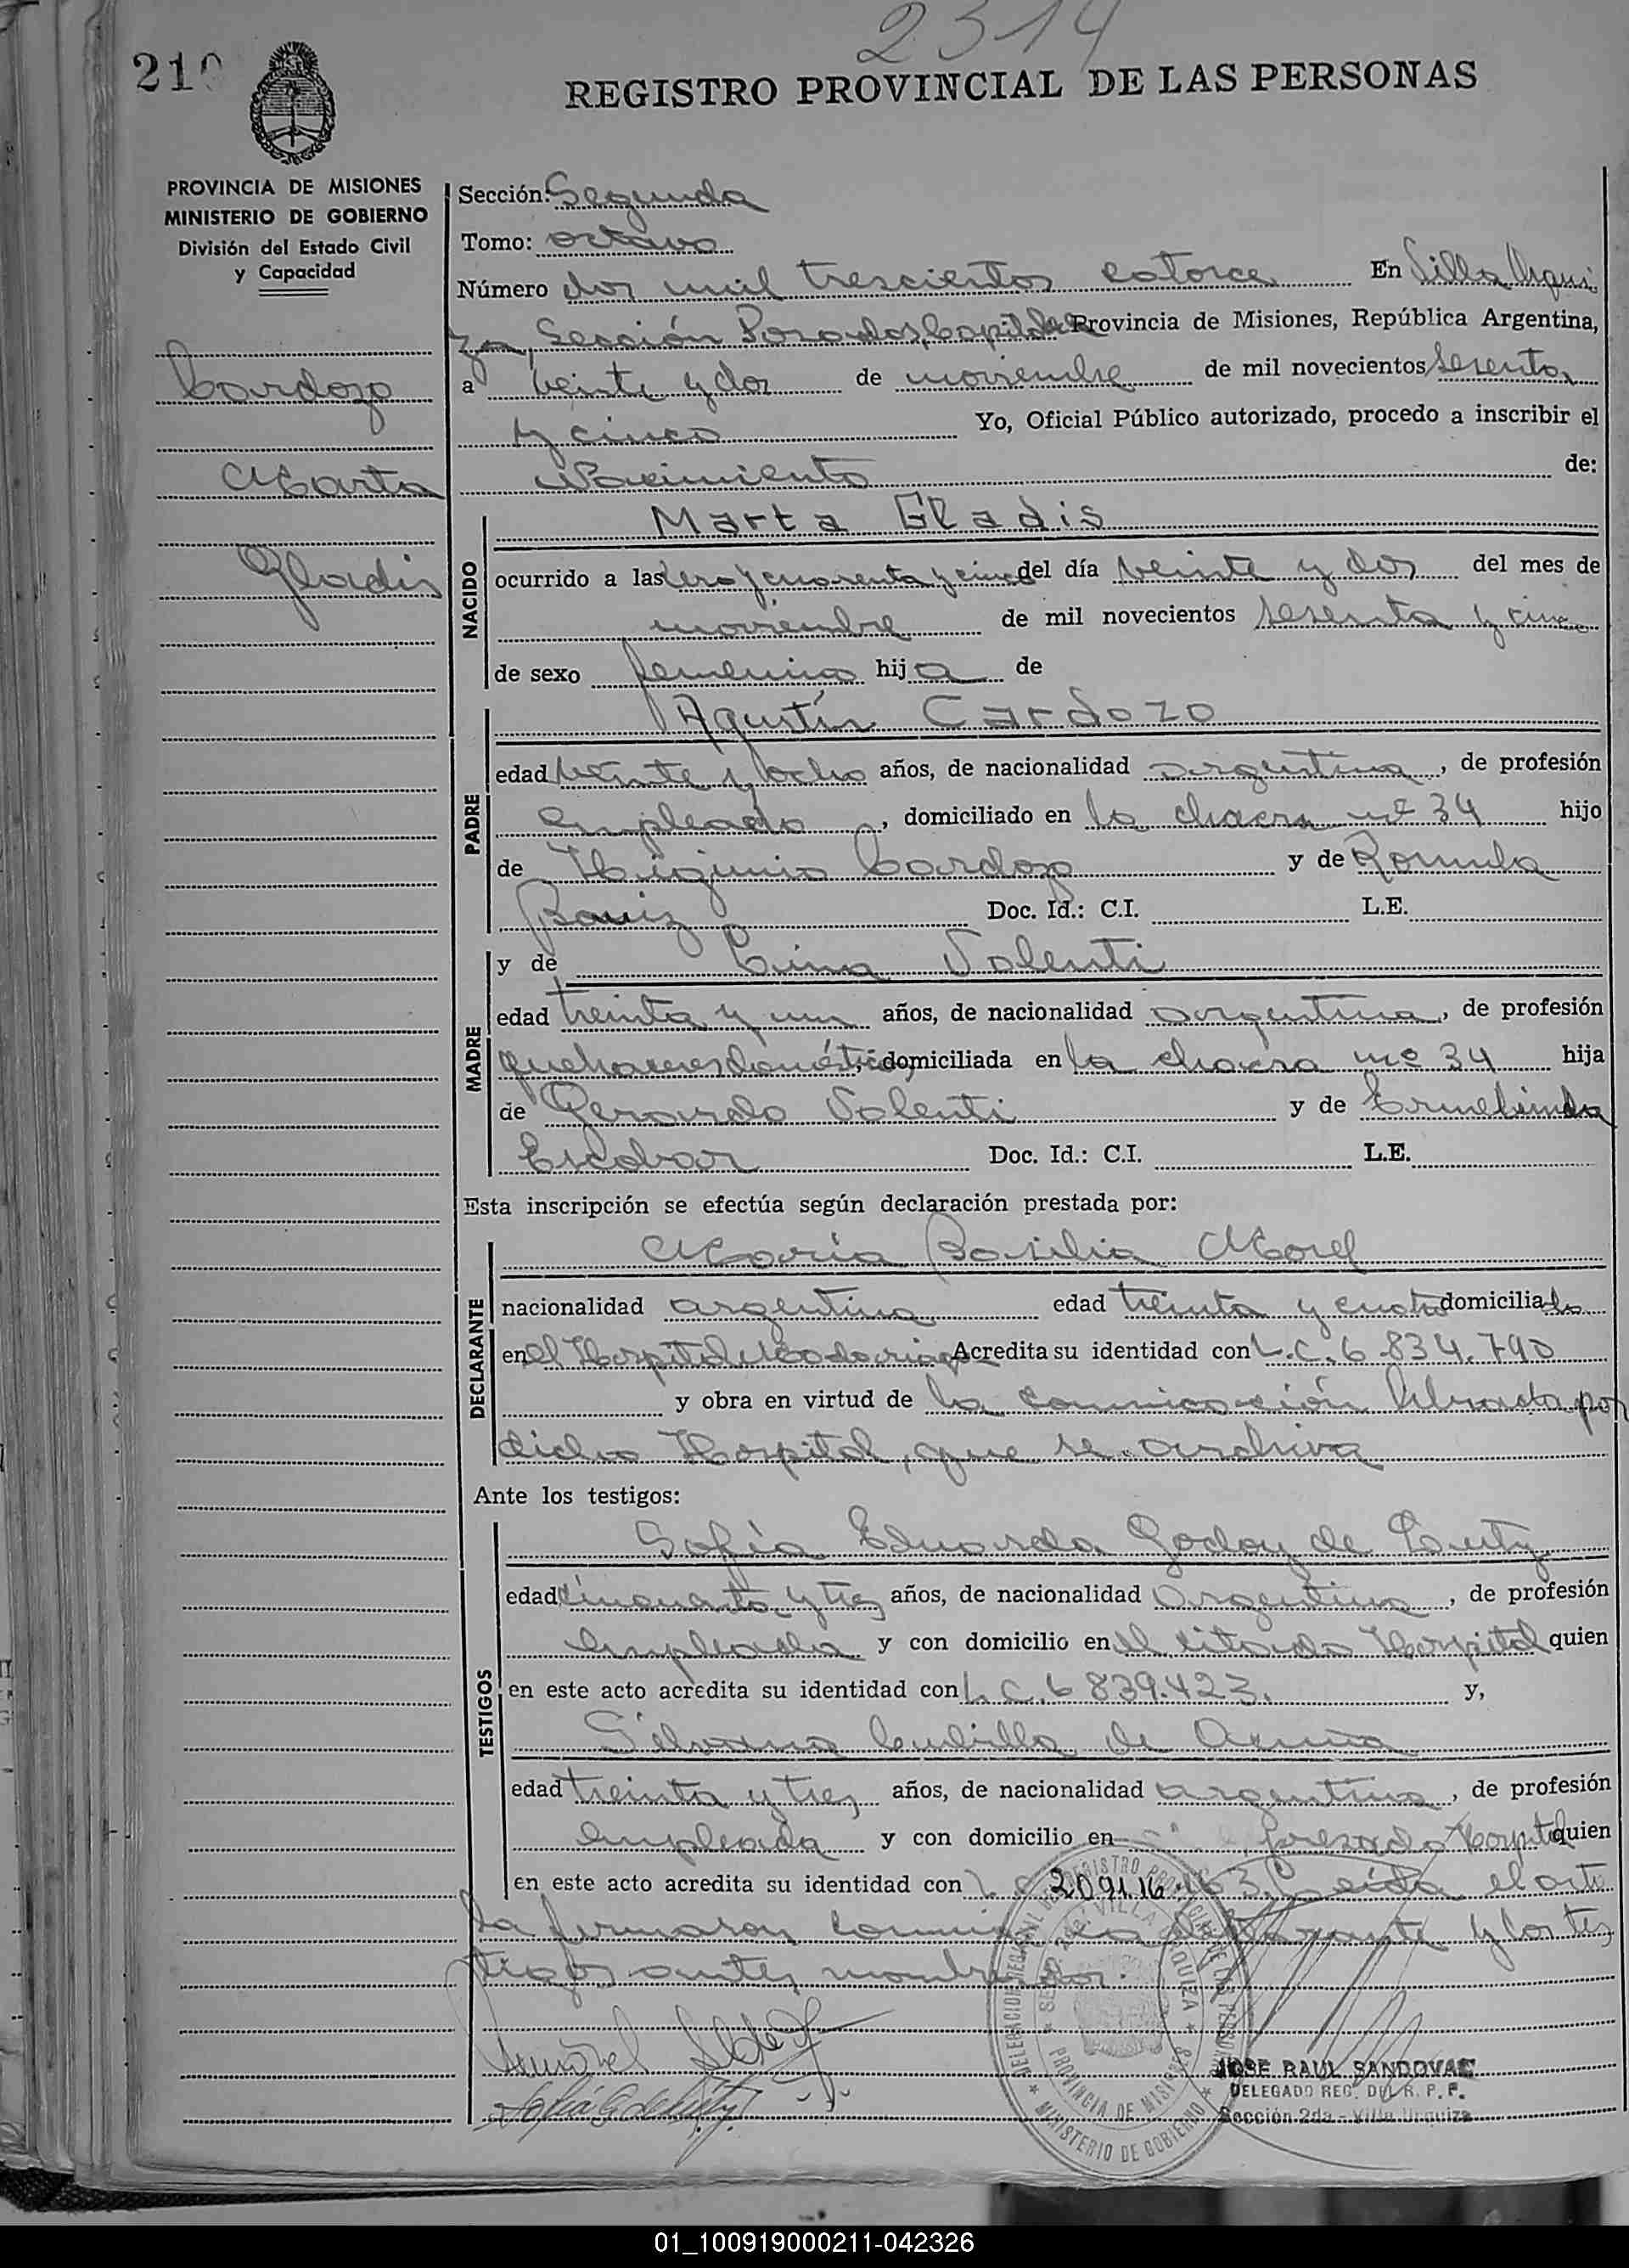 2314
210
REGISTRO PROVINCIAL DE LAS PERSONAS
PROVINCIA DE MISIONES
MINISTERIO DE GOBIERNO
División del Estado Civil
y Capacidad
Cardozo
Marta
Gladis
Sección: Segunda
Tomo: octavo
Número dos mil trescientos catorce En Villa Urqui
za, Sección Posadas, Capital de Provincia de Misiones, República Argentina,
a veinte y dos de noviembre de mil novecientos sesenta
y cinco Yo, Oficial Público autorizado, procedo a inscribir el
Nacimiento de:
NACIDO
Marta Gladis
ocurrido a las cero y cuarenta y cinco del día veinte y dos del mes de
noviembre de mil novecientos sesenta y cinco
de sexo femenino hija de
PADRE
Agustín Cardozo
edad veinte y ocho años, de nacionalidad argentina, de profesión
empleado, domiciliado en la chacra nº 34 hijo
de Higinio Cardozo y de Romula
Doc. Id.: C.I. L.E.
MADRE
y de
edad treinta y un años, de nacionalidad argentina, de profesión
quehaceres domésticos, domiciliada en la chacra nº 34 hija
de Gerardo y de Ermelinda
Escobar Doc. Id.: C.I. L.E.
Esta inscripción se efectúa según declaración prestada por:
DECLARANTE
María Basilia Morel
nacionalidad argentina edad treinta y cuatro domiciliada
en el Hospital Madariaga Acredita su identidad con L.C. 6.834.790
y obra en virtud de la comunicación librada por
dicho Hospital, que se archiva
Ante los testigos:
TESTIGOS
Sofía Eduarda Godoy de
edad cincuenta y tres años, de nacionalidad argentina, de profesión
empleada y con domicilio en el citado Hospital quien
en este acto acredita su identidad con L.C. 6 839.423. y,
Silvana Cubilla de Acuña
edad treinta y tres años, de nacionalidad argentina, de profesión
empleada y con domicilio en expresado Hospital quien
en este acto acredita su identidad con L.C. Leida el acta
la firmaron conmigo la declarante y los tes
tigos antes nombrados.
DELEGACION REGIONAL DEL REGISTRO PROVINCIAL DE LAS PERSONAS
SECC. 2da. VILLA URQUIZA
PROVINCIA DE MISIONES
MINISTERIO DE GOBIERNO
JOSE RAUL SANDOVAL
DELEGADO REG. DEL R. P. P.
Sección 2da - Villa Urquiza
01_100919000211-042326